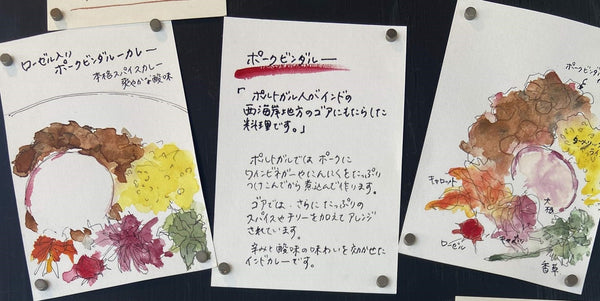 ローゼル入り
ポークビンダルーカレー
本格スパイスカレー
爽やかな酸味
ポークビンダルー
「ポルトガル人がインドの
西海岸地方のゴアにもたらした
料理です。」
ポルトガルではポークに
ワインビネガーやにんにくをたっぷり
つけこんでから煮込んで作ります。
ゴアでは、さらにたっぷりの
スパイスやチリーを加えてアレンジ
されています。
辛みと酸味の味わいを効かせた
インドカレーです。
キャロット
大根
ローゼル
香草